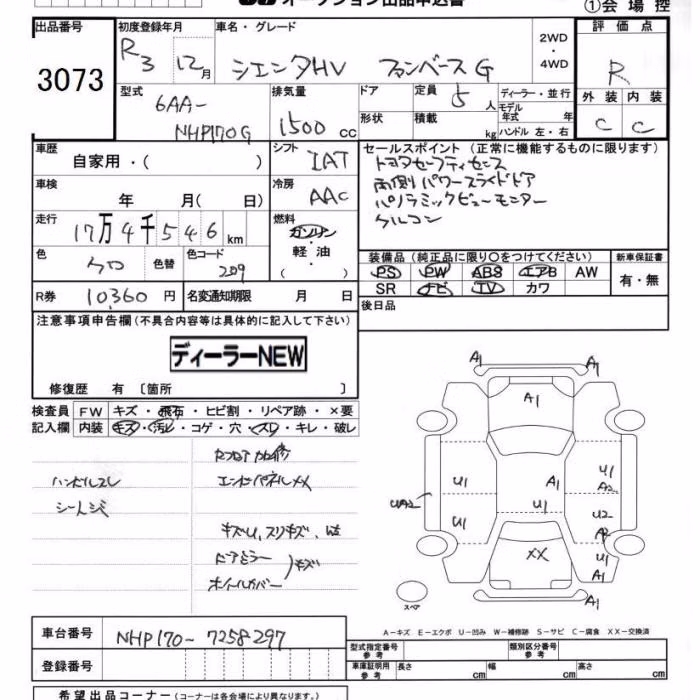 オークション出品申込書 ①会場控
出品番号 初度登録年月 車名・グレード 2WD・4WD 評価点
3073 R3 12月 シエンタHV ファンベースG R
型式 排気量 ドア 定員 5人 ディーラー・並行 外装 内装
6AA-NHP170G 1500cc 形状 積載 kg モデル年式 年 ハンドル 左・右 C C
車歴 自家用・( ) シフト IAT セールスポイント (正常に機能するものに限ります)
トヨタセーフティセンス
車検 年 月( 日) 冷房 AAC 両側パワースライドドア
パノラミックビューモニター
走行 17万4千546km 燃料 ガソリン・軽油・( )
色 クロ 色替 色コード 209 装備品 (純正品に限り〇をつけてください) 新車保証書
PS PW ABS エアB AW 有・無
R券 10,360円 名変通知期限 月 日 SR ナビ TV カワ
注意事項申告欄 (不具合内容等は具体的に記入して下さい) 後日品
ディーラーNEW
修復歴 有 〔箇所 〕
検査員 FW キズ・飛石・ヒビ割・リペア跡・×要
記入欄 内装 キズ・汚レ・コゲ・穴・スレ・キレ・破レ
ハンドルスレ エンドパネルXX
キズU、スリキズ、
ドアミラー
ホイルカバー )キズ
A1 A1
A1
U1 A1 U1 A2
UA2 U1 U2
U1 A2
XX U1
A1
A1
スペア
A-キズ E-エクボ U-凹み W-補修跡 S-サビ C-腐食 XX-交換済
車台番号 NHP170-7258297 型式指定番号 参考 類別区分番号 参考
登録番号 車庫証明用 参考 長さ cm 幅 cm 高さ cm
希望出品コーナー (コーナーは各会場により異なります。)